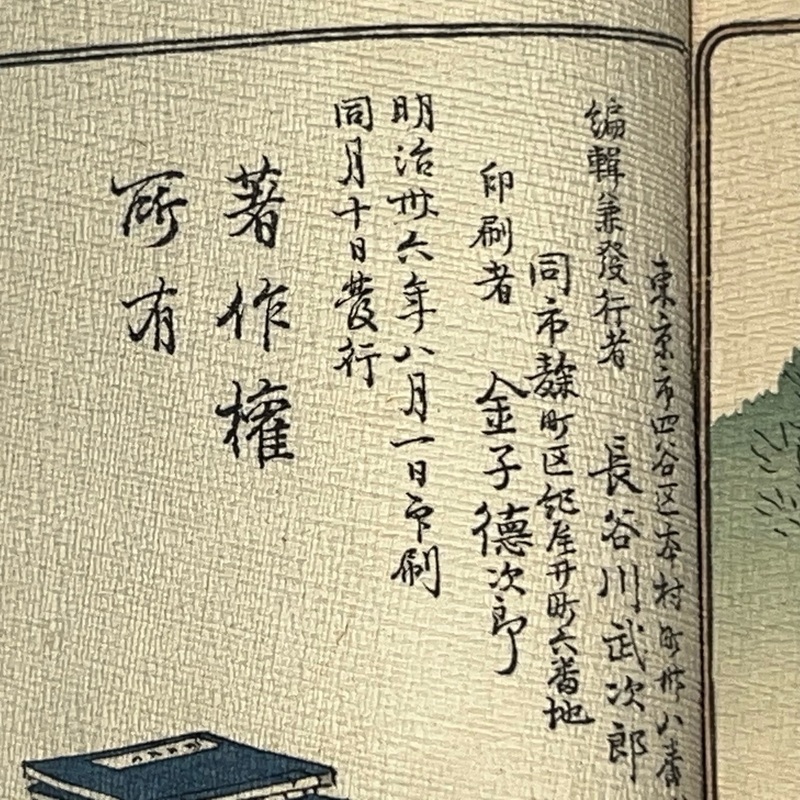 東京市四谷区本村町卅八番
編輯兼發行者 長谷川武次郎
同市麹町区紀尾井町六番地
印刷者 金子德次郎
明治卅六年八月一日印刷
同月十日發行
著作權
所有